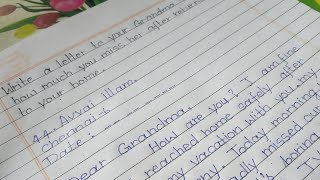 Write a letter to your Grandma
how much you miss her after
to your home.
44, Avvai Illam,
Chennai-6
Date: - - - - - - - -
Dear Grandma,
How are you? I am fine
I reached home safely after
my vacation with you
Today morning,
badly missed our
is boring